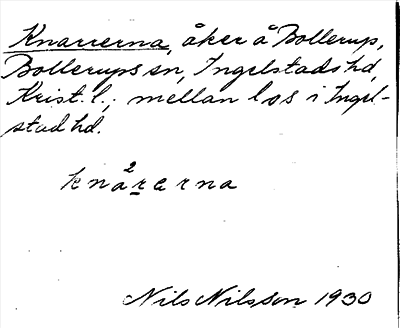 Knarrerna, åker å Bollerup,
Bollerups sn, Ingelstads hd,
Krist. l.; mellan los i Ingel-
stad hd.
knå²rerna
Nils Nilsson 1930